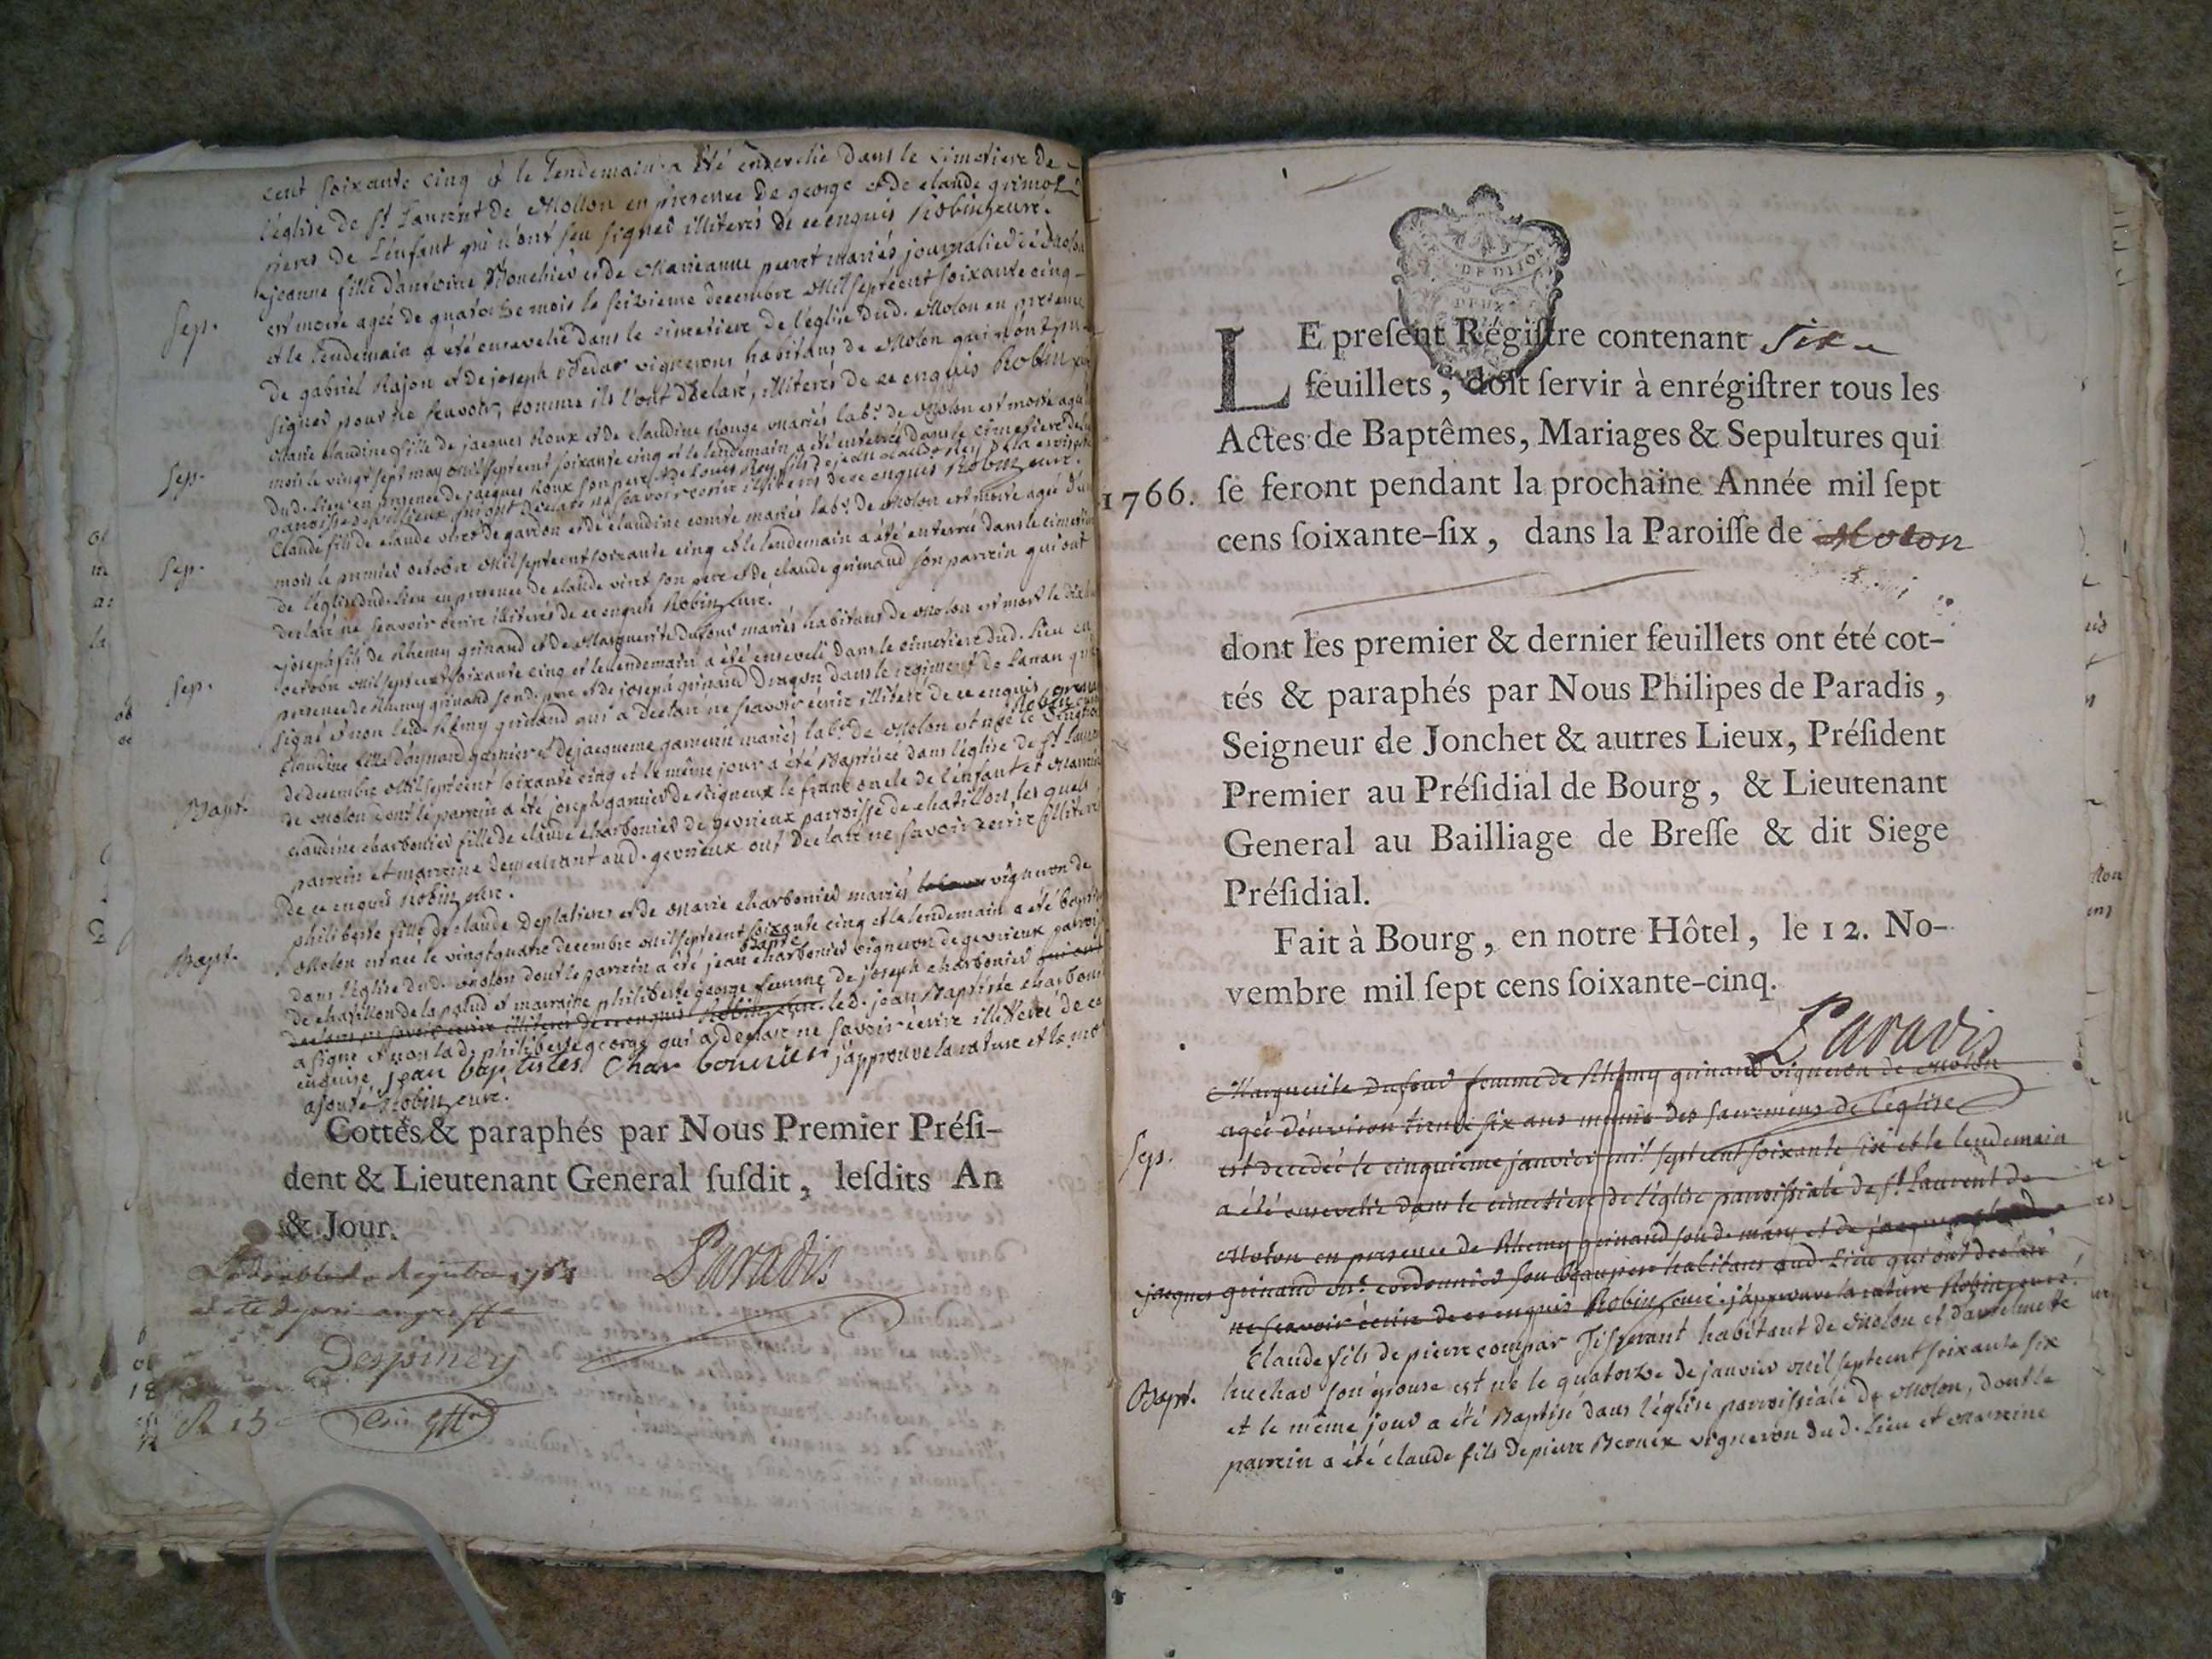 cent soixante cinq et le lendemain a été enseveli dans le cimetiere de
l'église de St Laurent de Mollon en presence de george et de claude grimod
freres de L'enfant qui n'ont sçu signer illiterés de ce enquis Robin, curé.
Sep.
jeanne fille d'antoine Bouchier et de Marieanne peuvet mariés journalier de Molon
est morte agée de quatorze mois le seizieme decembre Mil septcent soixante cinq
et le lendemain a été ensevelie dans le cimetiere de l'église dud. Molon en presence
de gabriel Rajon et de joseph vignerons habitans de Molon qui n'ont pu
signer pour ne sçavoir, comme ils l'ont déclaré, illiterés de ce enquis Robin
Sep.
Marie claudine fille de jacques Roux et de claudine Rouge mariés labr. de Molon est morte agée
mois le vingt sept may Mil septcent soixante cinq et le lendemain a été enterrée dans le cimetiere de
dud. Lieu en presence de jacques Roux son pere et de Louis Rey fils de jean claude Rey de la
paroisse de qui ont declaré ne sçavoir ecrire illiterés de ce enquis Robin, curé.
Sep.
Claude fils de claude viret de et de claudine comte mariés labr. de Molon est morte agée de
mois le premier octobre Mil septcent soixante cinq et le lendemain a été enterrée dans le cimetiere
de l'église dud. Lieu en presence de claude viret son pere et de claude grimaud son parrein qui ont
declaré ne sçavoir écrire illiterés de ce enquis Robin, curé.
Sep.
joseph fils de Rhemy grinand et de Marguerite Dufour mariés habitans de Molon est mort le
octobre Mil septcent soixante cinq et le lendemain a été enseveli dans le cimetiere dud. Lieu en
presence de Rhemy grinand son d. pere et de joseph grinand Dragon dans le regiment de
signé et non led. Rhemy grinand qui a declaré ne sçavoir écrire illiteré de ce enquis Robin, curé
Bapt.
Claudine fille d'aynard garnier et de jacqueme mariés labr. de Molon est née le
de decembre Mil septcent soixante cinq et le même jour a été Baptisée dans l'église de St Laurent
de Molon dont le parrein a été joseph garnier de Rigneux le franc oncle de l'enfant et Marreine
claudine charbonier fille de claude charbonier de gevrieux parroisse de chatillon, les quels
parrein et marreine demeurant aud. gevrieux ont declaré ne savoir écrire illiterés
de ce enquis Robin, curé.
Bapt.
philiberte fille de claude Desplatiere et de Marie charbonier mariés vigneron de
Molon est née le vingt quatre decembre Mil septcent soixante cinq et le lendemain a été baptisée
dans l'église dud. Molon dont le parrein a été jean Bapte charbonier vigneron de gevrieux paroisse
de chatillon de la palud et marraine philiberte george femme de joseph charbonier qui ont
declaré ne savoir écrire illiterés de ce enquis Robin, curé. led. jean Baptiste charbonier
a signé et non lad. philiberte george qui a declaré ne savoir écrire illiterée de ce
enquise jean baptistes Char bonnier j'approuve la rature et le mot
ajouté Robin, curé.
Cottés & paraphés par Nous Premier Prési-
dent & Lieutenant General susdit, lesdits An
& Jour.
Paradis
Le double du Registre 1765
a été deposé au greffe
Despiney
R 15
LE present Régistre contenant six
feuillets, doit servir à enrégistrer tous les
Actes de Baptêmes, Mariages & Sepultures qui
1766. se feront pendant la prochaine Année mil sept
cens soixante-six, dans la Paroisse de Molon
dont les premier & dernier feuillets ont été cot-
tés & paraphés par Nous Philipes de Paradis,
Seigneur de Jonchet & autres Lieux, Président
Premier au Présidial de Bourg, & Lieutenant
General au Bailliage de Bresse & dit Siege
Présidial.
Fait à Bourg, en notre Hôtel, le 12. No-
vembre mil sept cens soixante-cinq.
Paradis
Sep.
Marguerite Dufour femme de Rhemy grinand vigneron de Molon
agée d'environ trente six ans munie des sacremens de l'église
est decedée le cinquieme janvier mil septcent soixante six et le lendemain
a été ensevelie dans le cimetiere de l'église parroissiale de St Laurent de
Molon en presence de Rhemy grinand son d. mary et de
jacques grinand Me. cordonnier son beaupere habitans aud. Lieu qui ont declaré
ne sçavoir écrire de ce enquis Robin, curé. j'approuve la rature Robin, curé.
Bapt.
Claude fils de pierre compar Tisserant habitant de Molon et d'antelmette
huchar son épouse est né le quatorze de janvier Mil septcent soixante six
et le même jour a été Baptisé dans l'église parroissiale de Molon, dont le
parrein a été claude fils de pierre Bernex vigneron dud. Lieu et Marreine